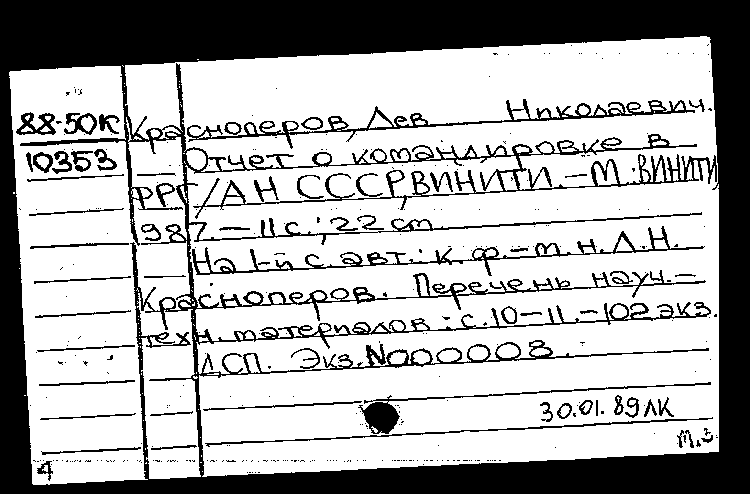 88-50К Красноперов, Лев Николаевич.
10353 Отчет о командировке в
ФРГ/АН СССР, ВИНИТИ. – М.: ВИНИТИ,
1987. – 11 с.; 22 см.
На 1-й с. авт.: к. ф.-м. н. Л.Н.
Красноперов. Перечень науч.-
техн. материалов: с. 10-11. – 102 экз.
ДСП. Экз. №000008.
30.01.89 ЛК
м.з
4